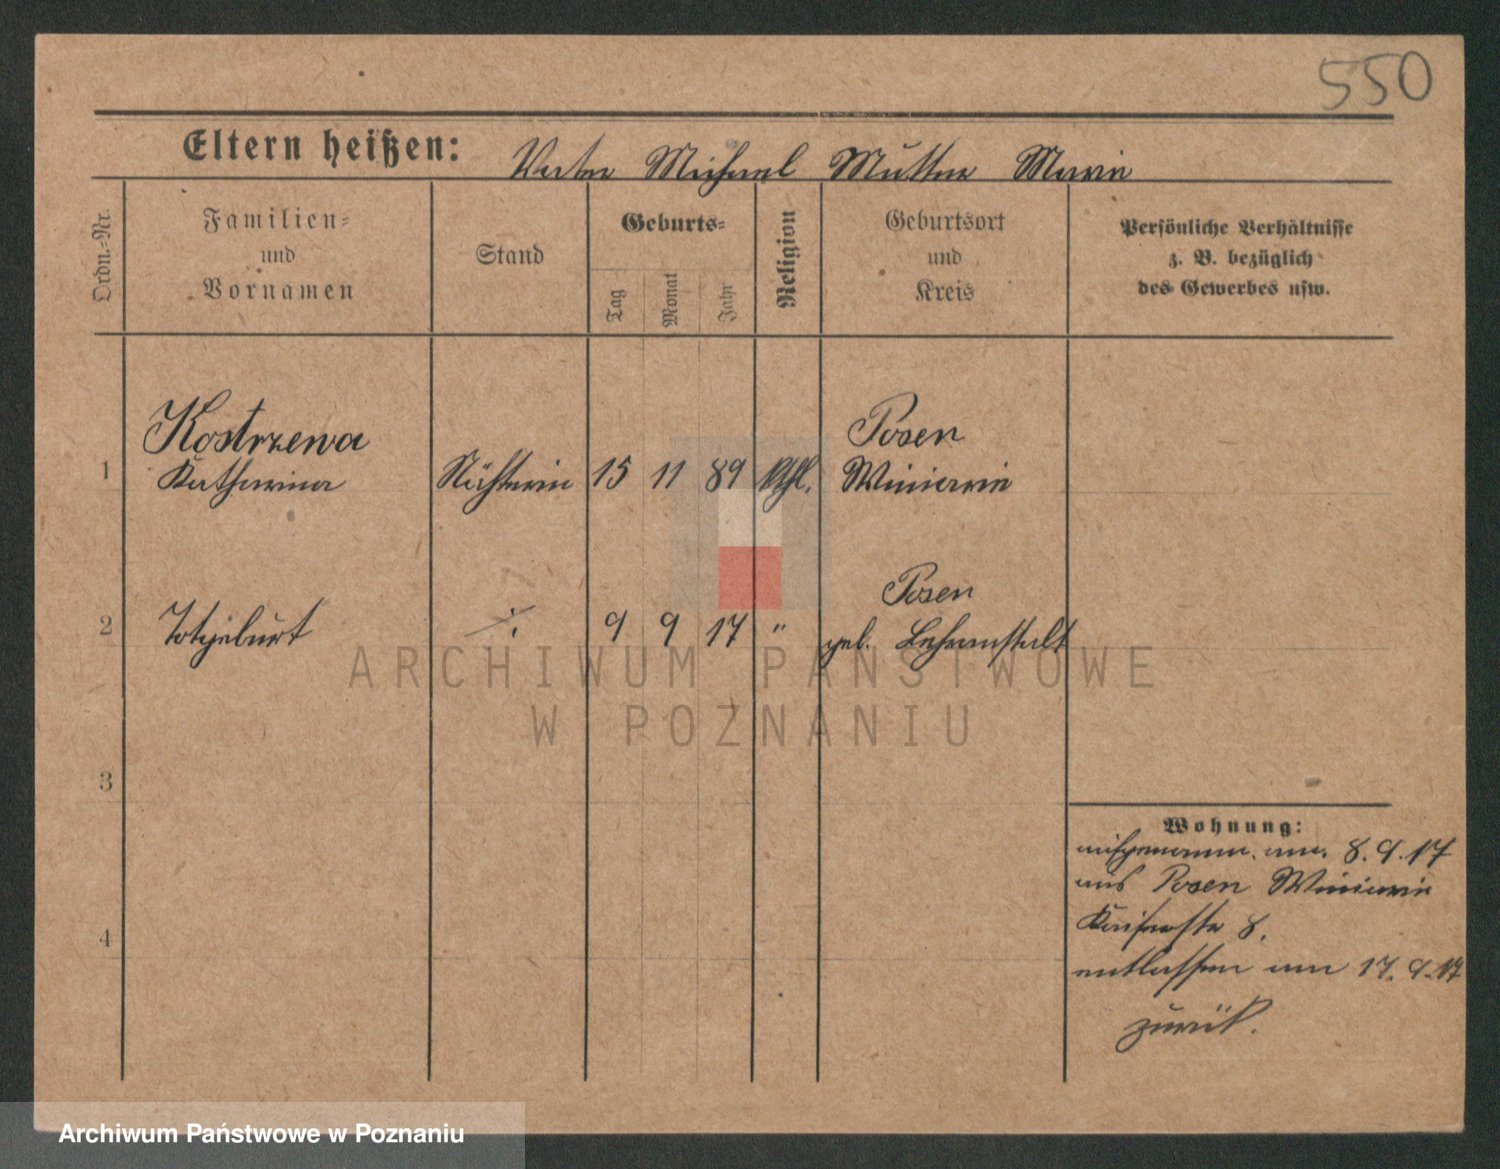 550
Eltern heißen: Vater Michael Mutter Marie
Ordn.-Nr.
Familien-
und
Vornamen
Stand
Geburts-
Tag
Monat
Jahr
Religion
Geburtsort
und
Kreis
Persönliche Verhältnisse
z. B. bezüglich
des Gewerbes usw.
Kostrzewa Posen
1 Katharina Nähterin 15 11 89 kthl. Winiarie
Posen
2 Totgeburt ./. 9 9 17 " geb. Lehranstalt
ARCHIWUM PAŃSTWOWE
W POZNANIU
3
4
Wohnung:
aufgenomm. am 8.9.17
aus Posen Winiarie
Kaiserstr 8.
entlassen am 17.9.17
zurück.
Archiwum Państwowe w Poznaniu